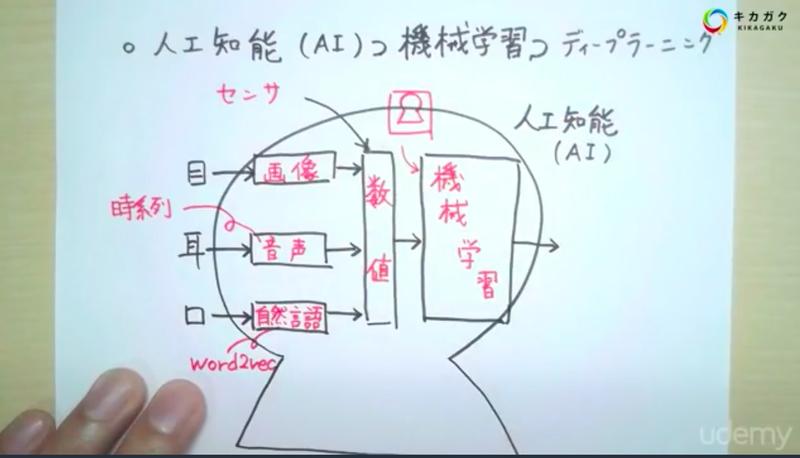 キカガク
KIKAGAKU
○ 人工知能 (AI) ⊃ 機械学習 ⊃ ディープラーニング
センサ
人工知能
(AI)
目
画像
数値
機械学習
時系列
耳
音声
口
自然言語
word2vec
udemy